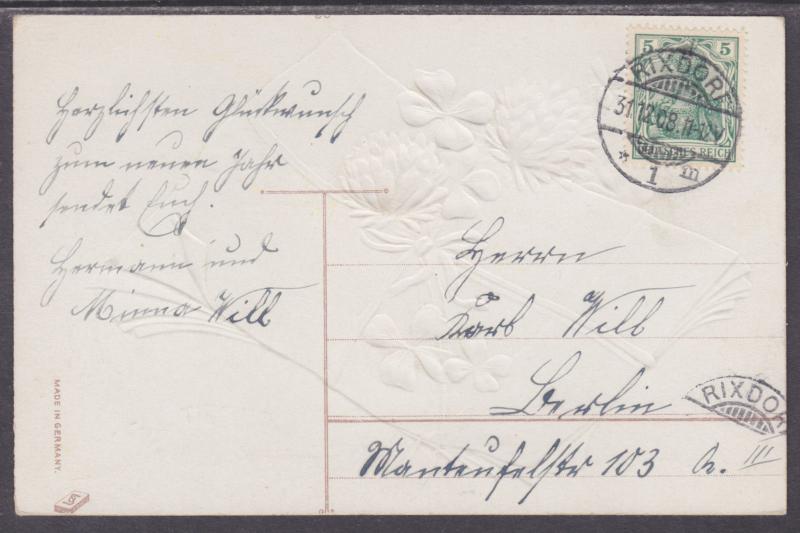 Herzlichsten Glückwunsch
zum neuen Jahr
sendet Euch.
Hermann und
Minna Will
MADE IN GERMANY.
5 5
RIXDORF
31.12.08.11-12V
* 1 m
REICH
Herrn
Karl Will
Berlin
RIXDOR
Manteufelstr 103 h. III